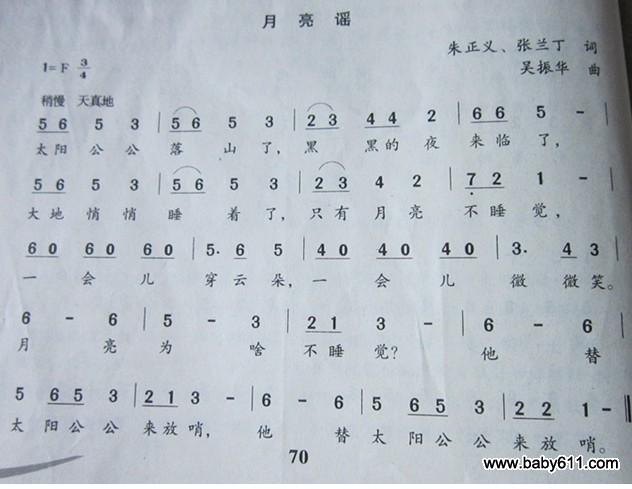 月亮谣
朱正义、张兰丁 词
1=F 3/4
吴振华 曲
稍慢 天真地
56 5 3 | 56 5 3 | 23 44 2 | 66 5 - |
太阳公公落山了,黑黑的夜来临了,
56 5 3 | 56 5 3 | 23 4 2 | 72 1 - |
大地悄悄睡着了,只有月亮不睡觉,
60 60 60 | 5· 6 5 | 40 40 40 | 3· 4 3 |
一会儿穿云朵,一会儿微微笑。
6 - 6 | 5 - 3 | 21 3 - | 6 - 6 |
月亮为啥不睡觉?他替
5 65 3 | 21 3 - | 6 - 6 | 5 65 3 | 22 1 - ‖
太阳公公来放哨,他替太阳公公来放哨。
70
www.baby611.com